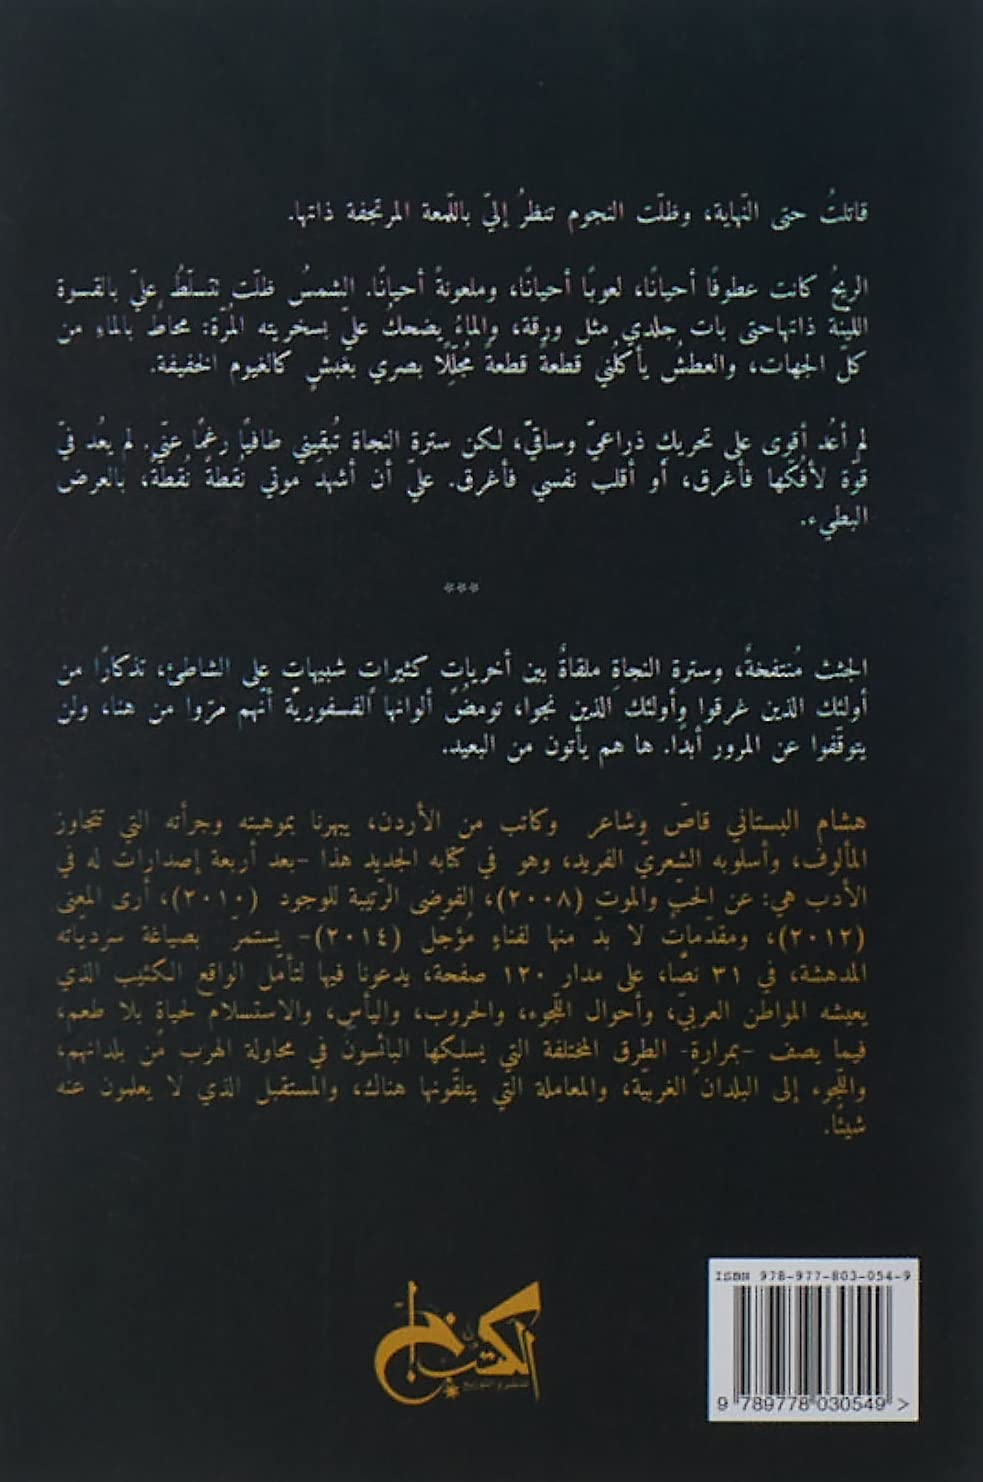 قاتلتُ حتى النّهاية، وظلّت النجوم تنظرُ إليّ باللّمعة المرتجفة ذاتها.
الريحُ كانت عطوفًا أحيانًا، لعوبًا أحيانًا، وملعونةً أحيانًا. الشمسُ ظلّت تتسلّطُ عليّ بالقسوة
اللينة ذاتهاحتى بات جلدي مثل ورقة، والماءُ يضحكُ عليّ بسخريته المُرّة: محاطٌ بالماءِ من
كل الجهات، والعطشُ يأكلُني قطعةً قطعةً مُجلِّلًا بصري بغبشٍ كالغيوم الخفيفة.
لم أعُد أقوى على تحريك ذراعيّ وساقيّ، لكن سترة النجاة تُبقيني طافيًا رغمًا عنّي. لم يعُد فيّ
قوّة لأفُكّها فأغرق، أو أقلب نفسي فأغرق. عليّ أن أشهدَ موتي نقطةً نُقطةً، بالعرض
البطيء.
***
الجثث مُنتفخةٌ، وسترة النجاةِ ملقاةٌ بين أخرياتٍ كثيراتٍ شبيهاتٍ على الشاطئ، تذكارًا من
أولئك الذين غرقوا وأولئك الذين نجوا، تومضُ ألوانها الفسفوريّة أنّهم مرّوا من هنا، ولن
يتوقّفوا عن المرور أبدًا. ها هم يأتون من البعيد.
هشام البستاني قاصّ وشاعر وكاتب من الأردن، يبهرنا بموهبته وجرأته التي تتجاوز
المألوف، وأسلوبه الشعريّ الفريد، وهو في كتابه الجديد هذا -بعد أربعة إصدارات له في
الأدب هي: عن الحبّ والموت (٢٠٠٨)، الفوضى الرّتيبة للوجود (٢٠١٠)، أرى المعنى
(٢٠١٢)، ومقدّماتٌ لا بدّ منها لفناءٍ مُؤجل (٢٠١٤)- يستمرّ بصياغة سردياته
المدهشة، في ٣١ نصًّا، على مدار ١٢٠ صفحة، يدعونا فيها لتأمّل الواقع الكئيب الذي
يعيشه المواطن العربيّ، وأحوال اللّجوء، والحروب، واليأس، والاستسلام لحياةٍ بلا طعم،
فيما يصف -بمرارةٍ- الطرق المختلفة التي يسلكها البائسون في محاولة الهرب من بلدانهم،
واللّجوء إلى البلدان الغربيّة، والمعاملة التّي يتلقّونها هناك، والمستقبل الذي لا يعلمون عنه
شيئًا.
الكتب خان
للنشر والتوزيع
ISBN 978-977-803-054-9
9 789778 030549 >